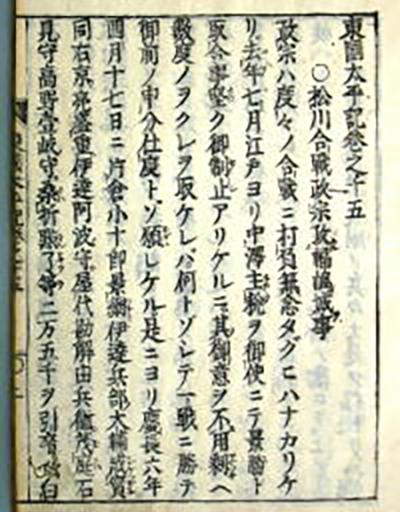 東國太平記巻之十五
○松川合戰政宗攻福嶋城事
政宗ハ度々ノ合戰ニ打負無念タグヒハナカリケ
リ去年七月江戸ヨリ中澤主税ヲ御使ニテ景勝ト
取合事堅ク御制止アリケルニ其御意ヲ不用剰ヘ
數度ノヲクレヲ取ケレバ何トゾシテ一戰ニ勝テ
御前ノ申分仕度トゾ願レケル是ニヨリ慶長六年
四月十七日ニ片倉小十郎景綱伊達兵部大輔成實
同右京亮盛重伊達阿波守屋代勘解由兵衛茂庭石
見守高野壹岐守桑折點了等二万五千ヲ引率 白